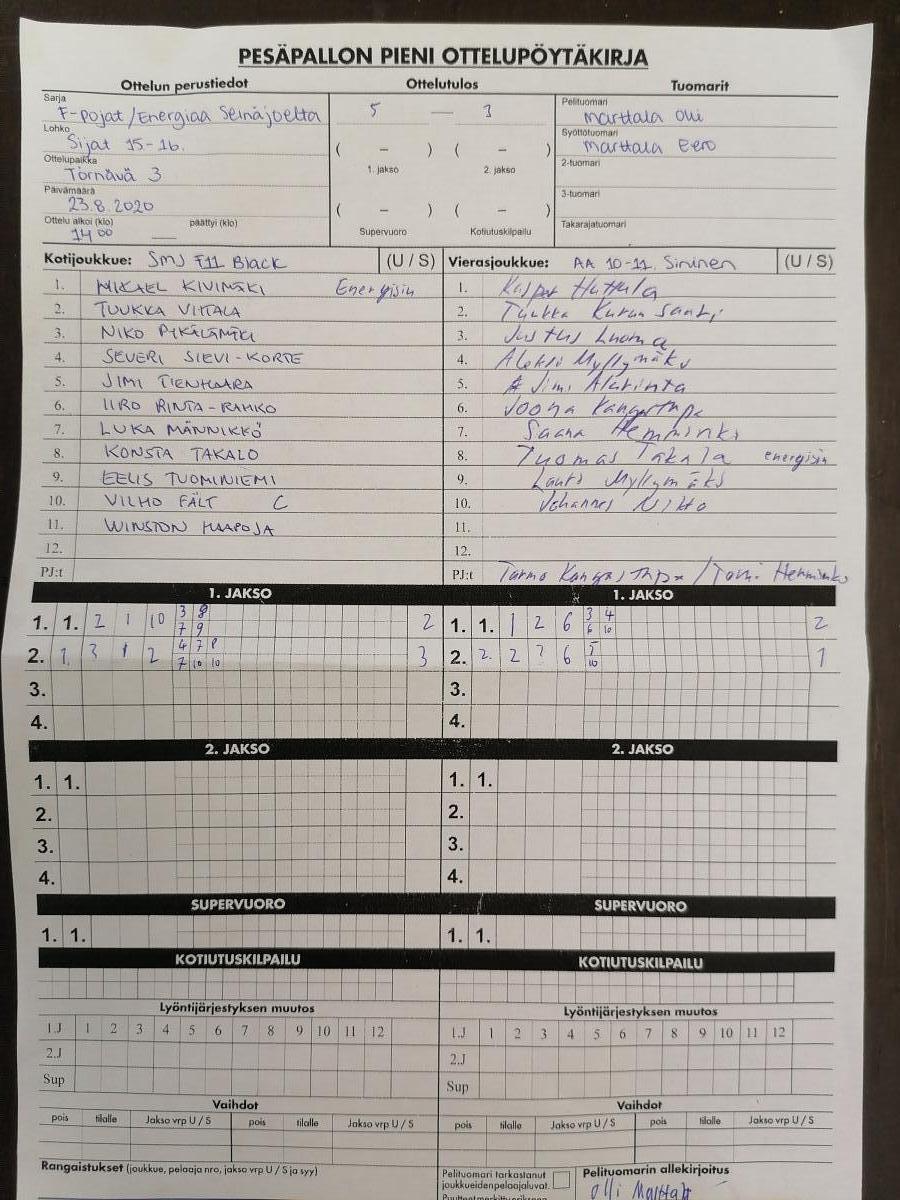 PESÄPALLON PIENI OTTELUPÖYTÄKIRJA
Ottelun perustiedot Ottelutulos Tuomarit
Sarja
F-pojat/Energiaa Seinäjoelta
Lohko
Sijat 15-16.
Ottelupaikka
Törnävä 3
Päivämäärä
23.8.2020
Ottelu alkoi (klo) päättyi (klo)
14 00
5 — 3
( – ) ( – )
1. jakso 2. jakso
( – ) ( – )
Supervuoro Kotiutuskilpailu
Pelituomari
Marttala Olli
Syöttötuomari
Marttala Eero
2-tuomari
3-tuomari
Takarajatuomari
Kotijoukkue: SMJ F11 Black (U / S)
1. MIKAEL KIVIMÄKI Energisin
2. TUUKKA VIITALA
3. NIKO PIKÄLÄMÄKI
4. SEVERI SIEVI-KORTE
5. JIMI TIENHAARA
6. IIRO RINTA-RAHKO
7. LUKA MÄNNIKKÖ
8. KONSTA TAKALO
9. EELIS TUOMINIEMI
10. VILHO FÄLT C
11. WINSTON HAAPOJA
12.
PJ:t
Vierasjoukkue: AA 10-11 Sininen (U / S)
1. Huttula
2. Tuukka
3. Justus Luoma
4. Aleksi Myllymäki
5. Jimi Alarinta
6. Joona Kangastupa
7. Saana Hemminki
8. Tuomas Takala energisin
9. Lauri Myllymäki
10. Johannes Niko
11.
12.
PJ:t Tarmo Kangastupa / Tomi Hemminki
1. JAKSO 1. JAKSO
1. 1. 2 1 10 3 8 2
7 9
2. 1. 3 1 2 4 7 8 3
7 10 10
3.
4.
1. 1. 1 2 6 3 4 2
6 10
2. 2. 2 ? 6 5 1
10
3.
4.
2. JAKSO 2. JAKSO
1. 1. 1. 1.
2. 2.
3. 3.
4. 4.
SUPERVUORO SUPERVUORO
1. 1. 1. 1.
KOTIUTUSKILPAILU KOTIUTUSKILPAILU
Lyöntijärjestyksen muutos Lyöntijärjestyksen muutos
1.J 1 2 3 4 5 6 7 8 9 10 11 12 1.J 1 2 3 4 5 6 7 8 9 10 11 12
2.J 2.J
Sup Sup
Vaihdot Vaihdot
pois tilalle Jakso vrp U / S pois tilalle Jakso vrp U / S pois tilalle Jakso vrp U / S pois tilalle Jakso vrp U / S
Rangaistukset (joukkue, pelaaja nro, jakso vrp U / S ja syy)
Pelituomari tarkastanut
joukkueidenpelaajaluvat.
Pelituomarin allekirjoitus
Olli Marttala